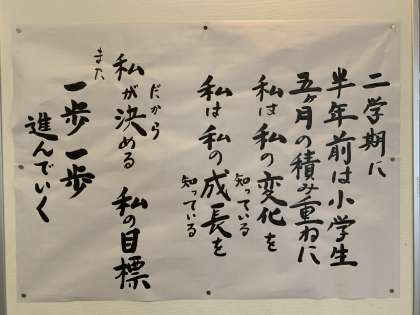 二学期に
半年前は小学生
五ヶ月の積み重ねに
私は私の変化を
知っている
私は私の成長を
知っている
だから
私が決める 私の目標
また
一歩一歩
進んでいく